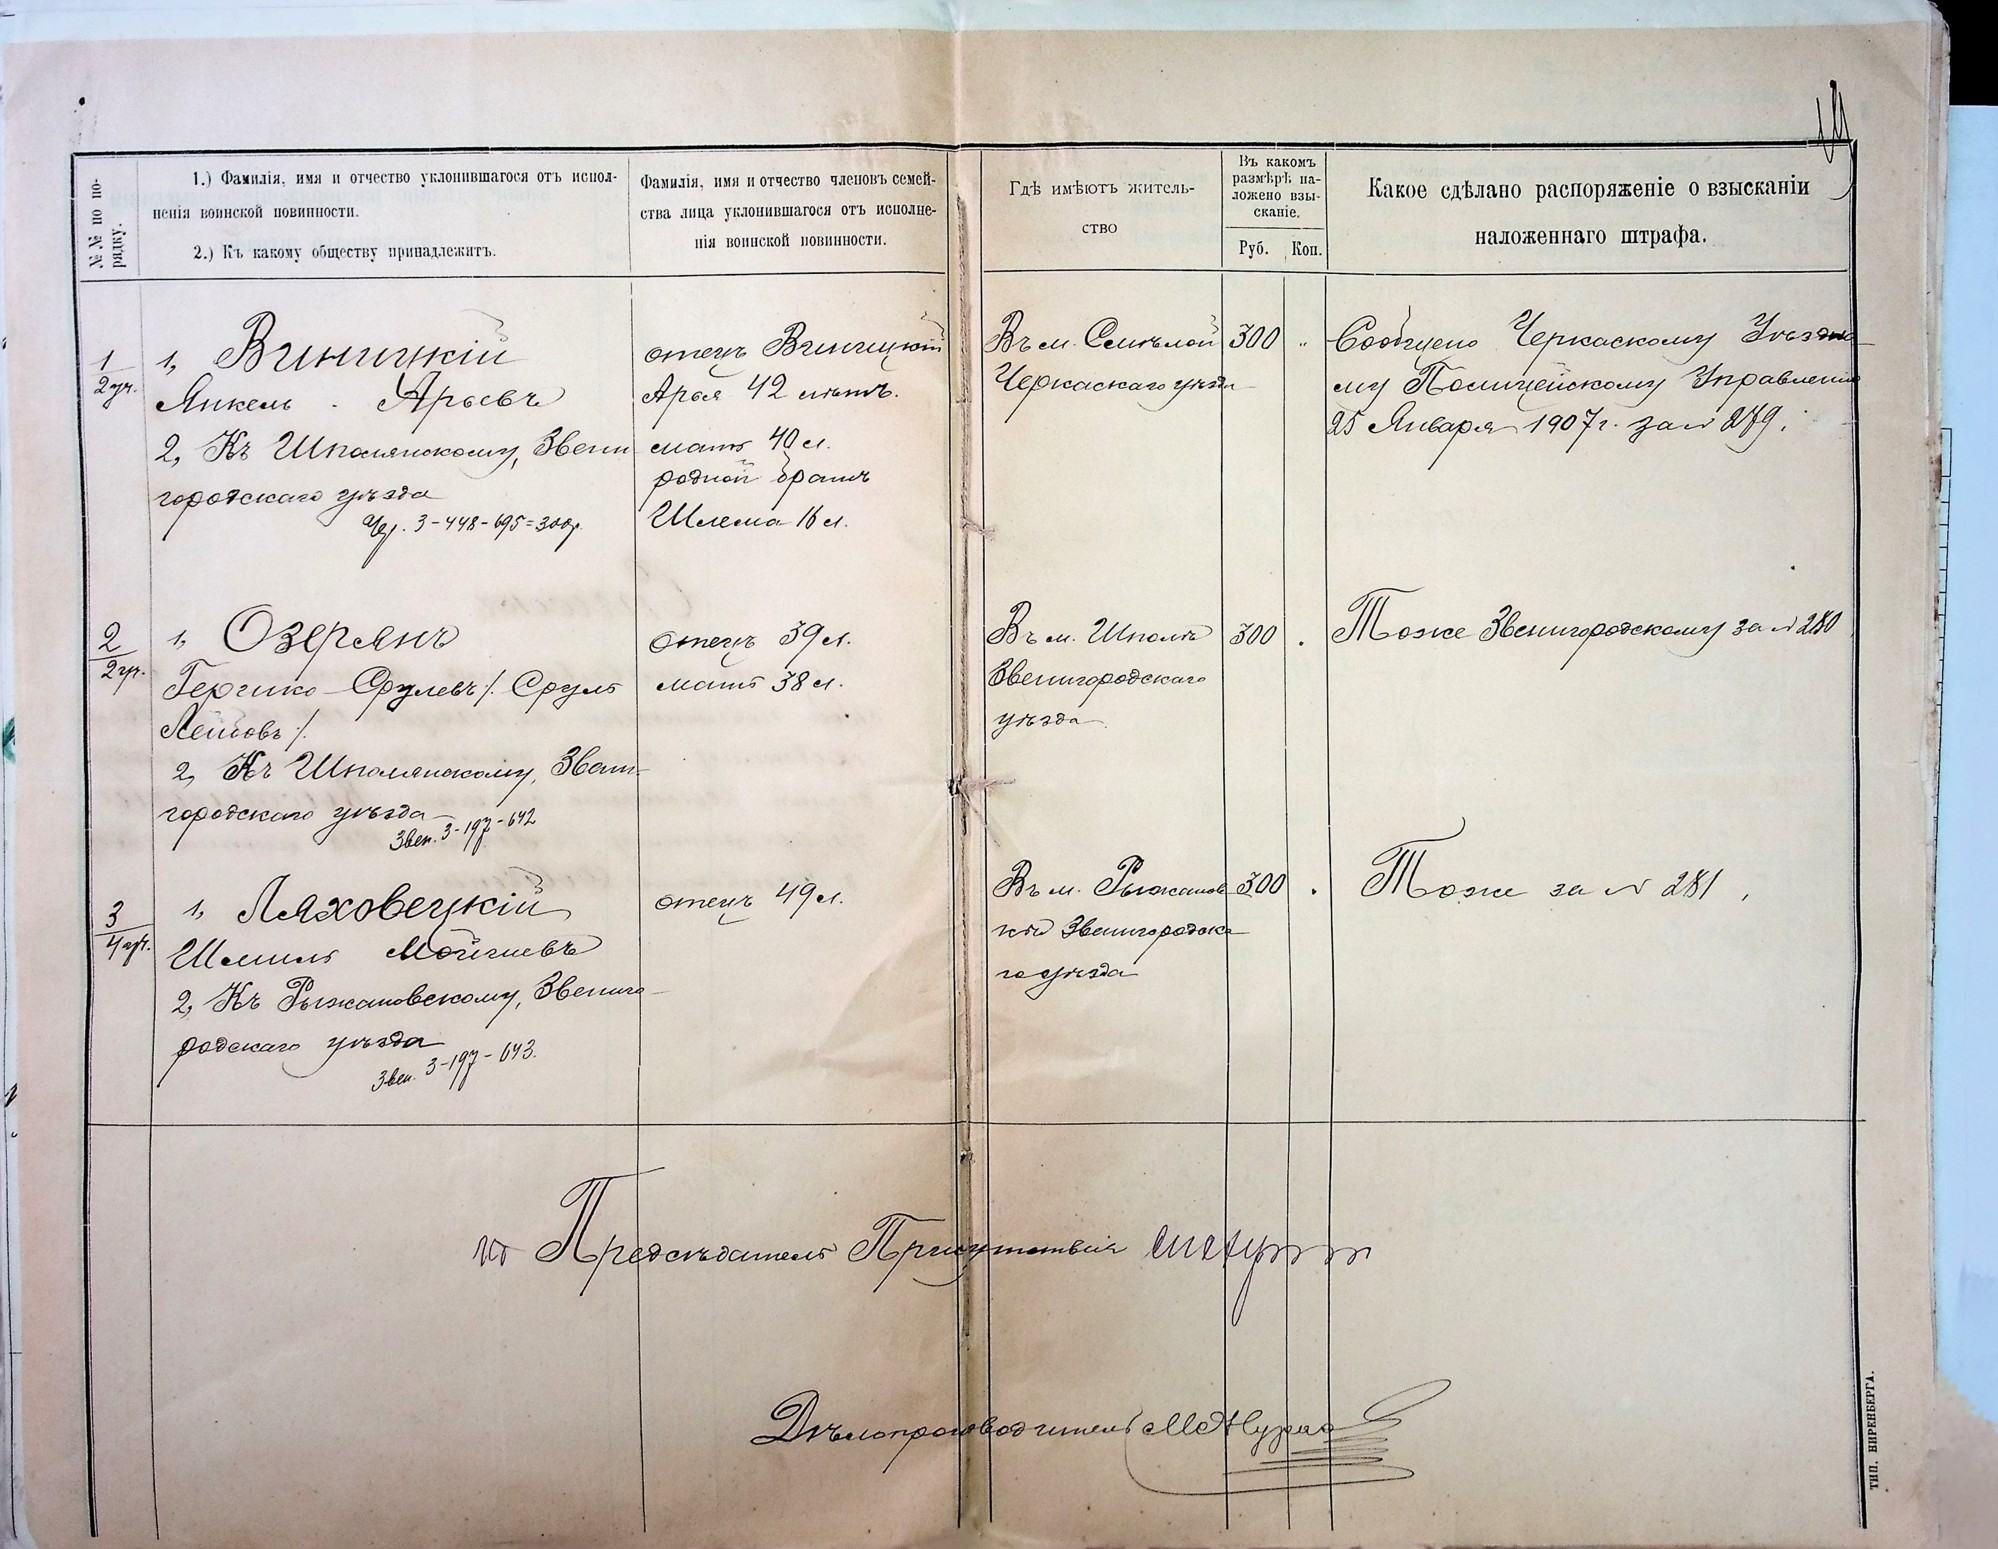 14
№№ по по-
рядку.
1.) Фамилія, имя и отчество уклонившагося отъ испол-
ненія воинской повинности.
2.) Къ какому обществу принадлежитъ.
Фамилія, имя и отчество членовъ семей-
ства лица уклонившагося отъ исполне-
нія воинской повинности.
Гдѣ имѣютъ житель-
ство
Въ какомъ
размѣрѣ на-
ложено взы-
сканіе.
Руб. Коп.
Какое сдѣлано распоряженіе о взысканіи
наложеннаго штрафа.
1
2 уч.
1, Виницкій
Янкель Арьевъ
2, Къ Шполянскому, Звени
городскаго уѣзда
Чер. 3-448-695=300р.
отецъ Виницкій
Арья 42 лѣтъ.
мать 40 л.
родной братъ
Шлема 16 л.
Въ м. Смѣлой
Черкаскаго уѣзда
300 "
Сообщено Черкаскому Уѣздно-
му Полицейскому Управленію
25 Января 1907 г. за № 279.
2
2 уч.
1, Озерянъ
Гершко Срулевъ /. Сруль
Лейбовъ /.
2, Къ Шполянскому, Звени-
городскаго уѣзда
Звен. 3-197-642
отецъ 39 л.
мать 38 л.
Въ м. Шполѣ
Звенигородскаго
уѣзда
300 .
Тоже Звенигородскому за № 280
3
4 уч.
1, Ляховецкій
Шмиль Мойшевъ
2, Къ Рыжановскому, Звениго-
родскаго уѣзда
Звен. 3-197-643.
отецъ 49 л.
Въ м. Рыжанов
кѣ Звенигородска
го уѣзда
300 .
Тоже за № 281.
Предсѣдатель Присутствія
Дѣлопроизводитель
ТИП. НИРЕНБЕРГА.